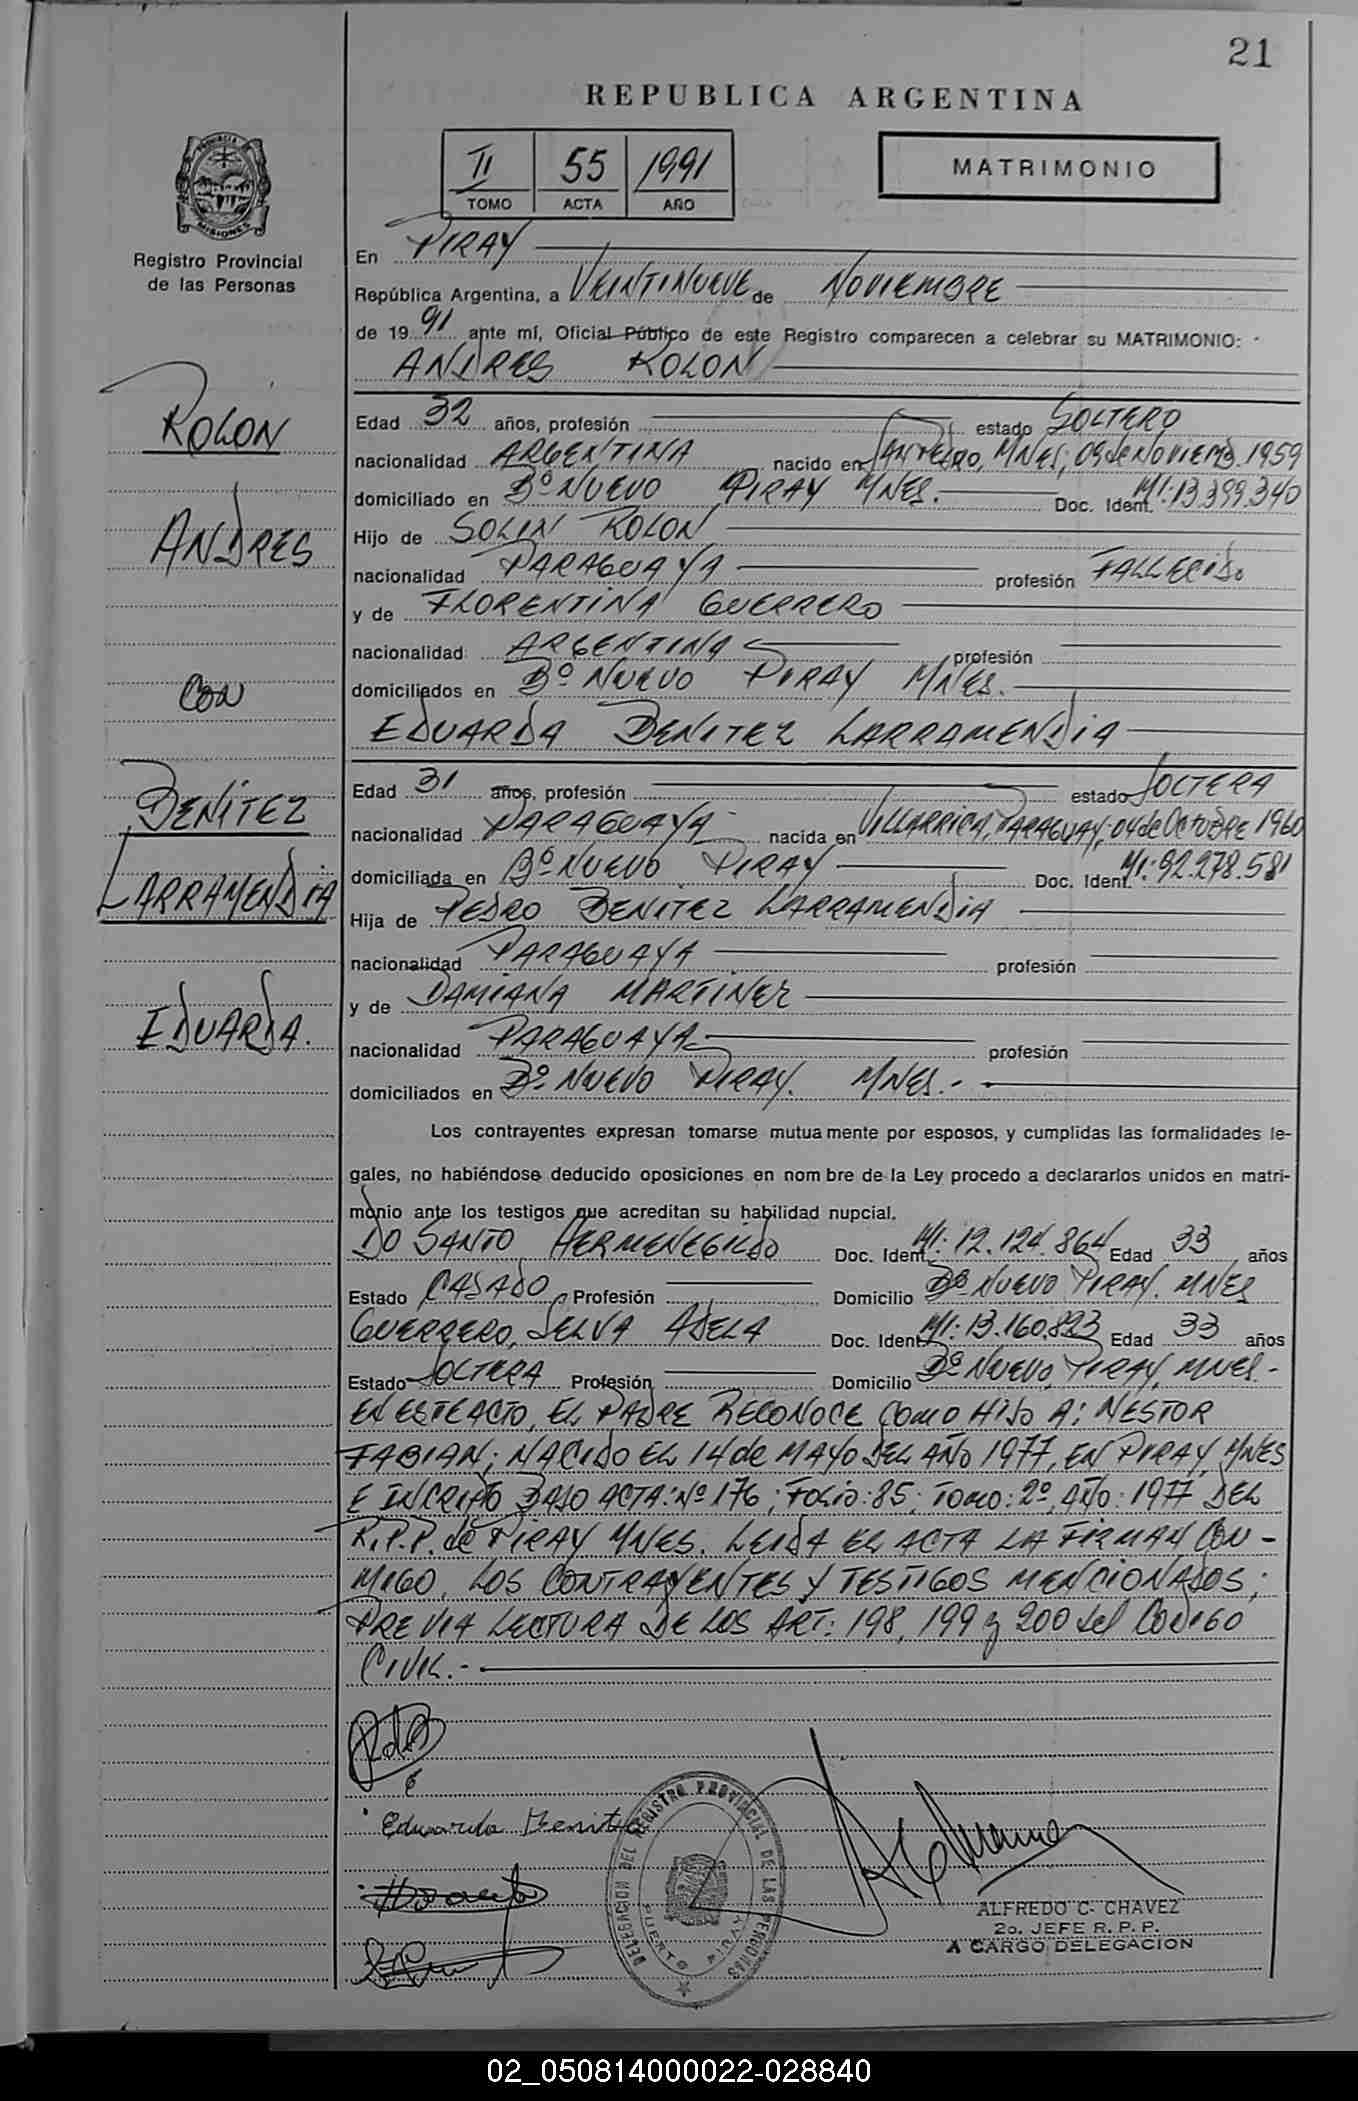 21
REPUBLICA ARGENTINA
II 55 1991
TOMO ACTA AÑO
MATRIMONIO
PROVINCIA DE
MISIONES
Registro Provincial
de las Personas
ROLON
ANDRES
CON
BENITEZ
LARRAMENDIA
EDUARDA.
En PIRAY
República Argentina, a VEINTINUEVE de NOVIEMBRE
de 1991 ante mí, Oficial Público de este Registro comparecen a celebrar su MATRIMONIO:
ANDRES ROLON
Edad 32 años, profesión estado SOLTERO
nacionalidad ARGENTINA nacido en SAN PEDRO, MNES; 09 de NOVIEMB. 1959
domiciliado en Bº NUEVO PIRAY MNES. Doc. Ident. MI: 13.399.340
Hijo de SOLIN ROLON
nacionalidad PARAGUAYA profesión FALLECIDO
y de FLORENTINA GUERRERO
nacionalidad ARGENTINA profesión
domiciliados en Bº NUEVO PIRAY MNES.
EDUARDA BENITEZ LARRAMENDIA
Edad 31 años, profesión estado SOLTERA
nacionalidad PARAGUAYA nacida en VILLARRICA, PARAGUAY; 04 de OCTUBRE 1960
domiciliada en Bº NUEVO PIRAY Doc. Ident. MI: 92.278.581
Hija de PEDRO BENITEZ LARRAMENDIA
nacionalidad PARAGUAYA profesión
y de DAMIANA MARTINEZ
nacionalidad PARAGUAYA profesión
domiciliados en Bº NUEVO PIRAY. MNES.-
Los contrayentes expresan tomarse mutuamente por esposos, y cumplidas las formalidades le-
gales, no habiéndose deducido oposiciones en nombre de la Ley procedo a declararlos unidos en matri-
monio ante los testigos que acreditan su habilidad nupcial.
DO SANTO HERMENEGILDO Doc. Ident. MI: 12.124.864 Edad 33 años
Estado CASADO Profesión Domicilio Bº NUEVO PIRAY. MNES
GUERRERO, SELVA ADELA Doc. Ident. MI: 13.160.823 Edad 33 años
Estado SOLTERA Profesión Domicilio Bº NUEVO, PIRAY, MNES.-
EN ESTE ACTO, EL PADRE RECONOCE COMO HIJO A: NESTOR
FABIAN; NACIDO EL 14 de MAYO DEL AÑO 1977, EN PIRAY, MNES
E INCRIPTO BAJO ACTA: Nº 176; FOLIO: 85; TOMO: 2º, AÑO: 1977 DEL
R.P.P. de PIRAY MNES. LEIDA EL ACTA LA FIRMAN CON-
MIGO, LOS CONTRAYENTES Y TESTIGOS MENCIONADOS;
PREVIA LECTURA DE LOS ART: 198, 199 y 200 del CODIGO
CIVIL.-
Eduarda Benitez
DELEGACION DEL REGISTRO PROVINCIAL DE LAS PERSONAS
PUERTO PIRAY
ALFREDO C. CHAVEZ
2o. JEFE R. P. P.
A CARGO DELEGACION
02_050814000022-028840